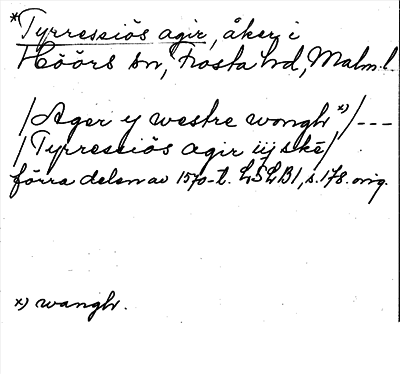 *Tyrressiös agir, åker i
Höörs sn, Frosta hd, Malm.l.
/Ager y westre wongh x)/ ---
/Tyrressiös agir iij skē/
förra delen av 1570-t. LSLB1, s.178. orig.
x) wangh.